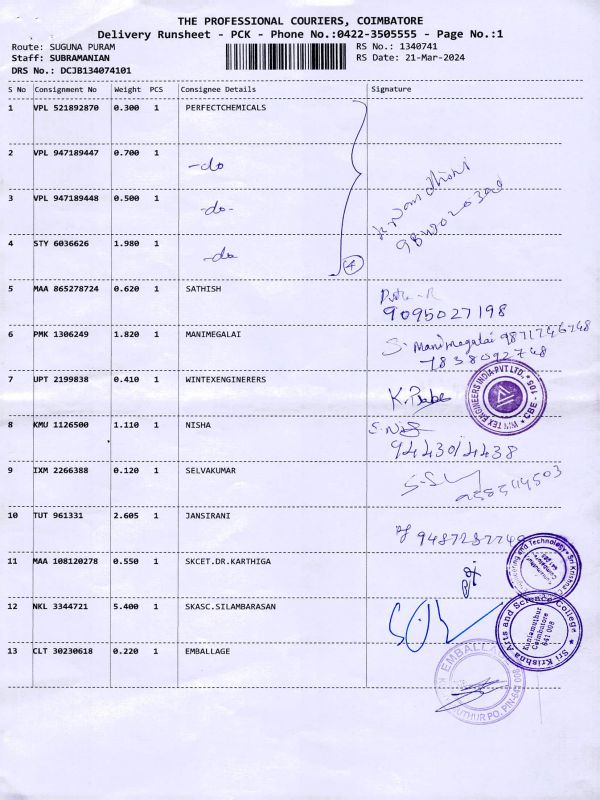 THE PROFESSIONAL COURIERS, COIMBATORE
Delivery Runsheet - PCK - Phone No.:0422-3505555 - Page No.:1
Route: SUGUNA PURAM
RS No.: 1340741
Staff: SUBRAMANIAN
RS Date: 21-Mar-2024
DRS No.: DCJB134074101
S No Consignment No Weight PCS Consignee Details Signature
1 VPL 521892870 0.300 1 PERFECTCHEMICALS
2 VPL 947189447 0.700 1 -do
3 VPL 947189448 0.500 1 -do-
4 STY 6036626 1.980 1 -do
4
5 MAA 865278724 0.620 1 SATHISH
9095027198
6 PMK 1306249 1.820 1 MANIMEGALAI S. Manimegalai
7838092748
7 UPT 2199838 0.410 1 WINTEXENGINERERS K. Babe
WINTEX ENGINEERS INDIA PVT LTD., CBE - 105
8 KMU 1126500 1.110 1 NISHA
9443014438
9 IXM 2266388 0.120 1 SELVAKUMAR
10 TUT 961331 2.605 1 JANSIRANI
11 MAA 108120278 0.550 1 SKCET.DR.KARTHIGA
Engineering and Technology Sri Krishna
12 NKL 3344721 5.400 1 SKASC.SILAMBARASAN
Sri Krishna Arts and Science College
Kuniamuthur
Coimbatore
641 008
13 CLT 30230618 0.220 1 EMBALLAGE
EMBALLA
UTHUR PO. PIN-641 008